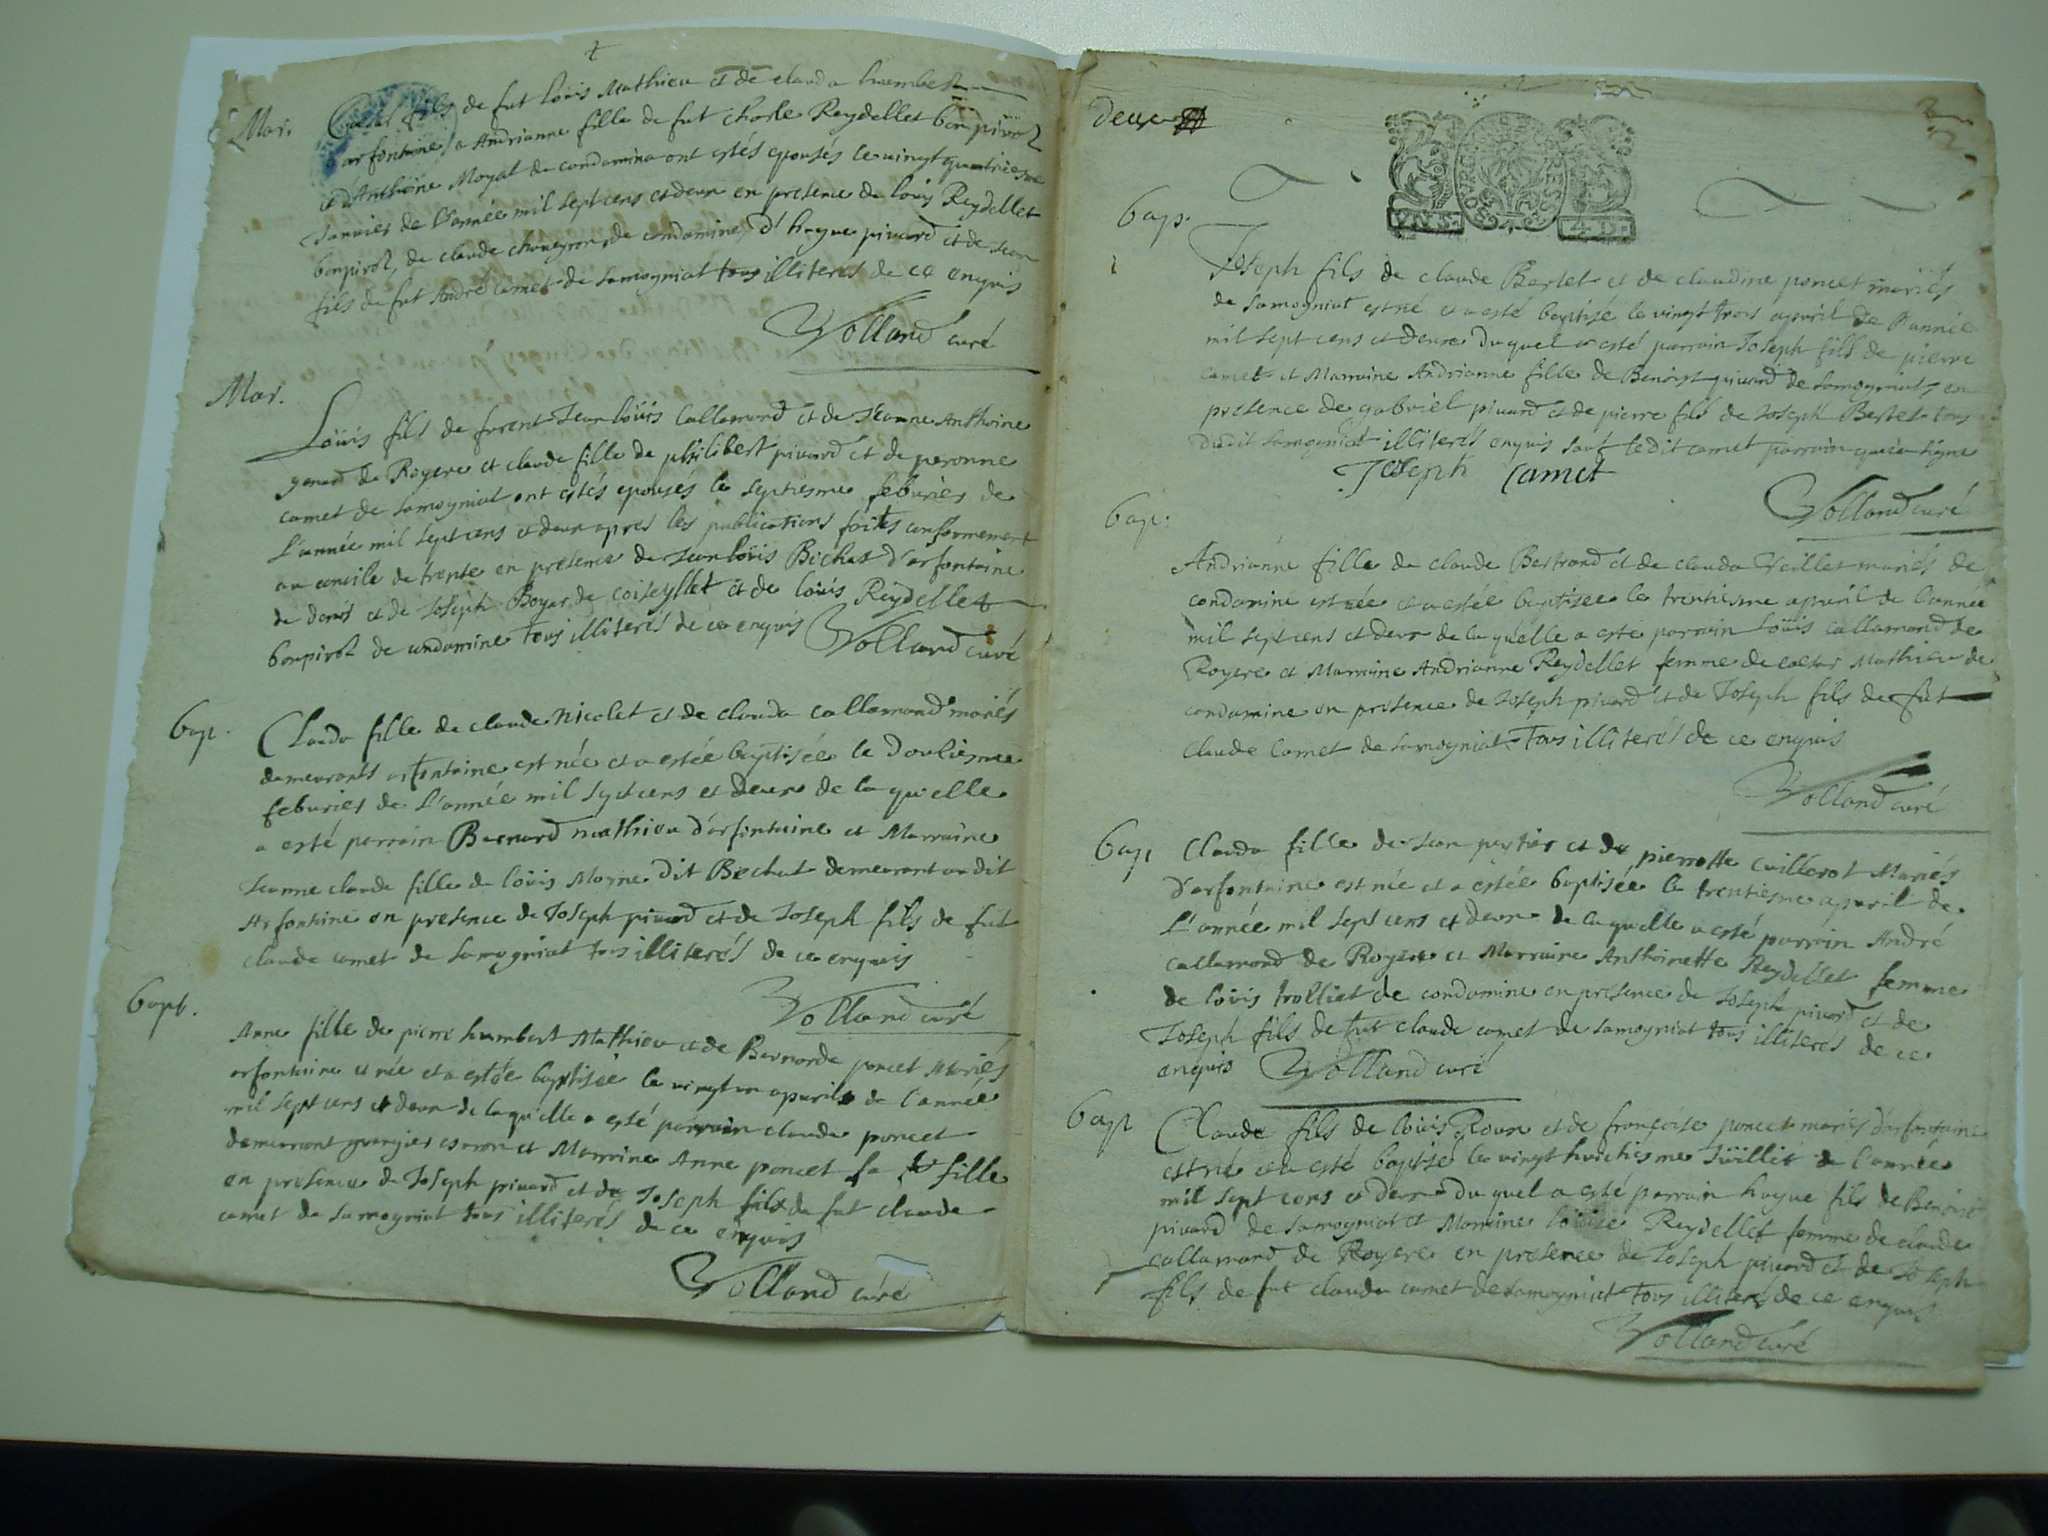 Mar.
Cæsar fils de fut Loüis Mathieu et de clauda humbert
arfontaine, a Andrianne fille de fut charle Reydellet bonpirol
et d'Anthoine Moyat de condamina ont estés epousés le vingt quatriesme
Januier de l'année mil sept cens et deux en presence de loüis Reydellet
bonpirol, de claude de condamine, d'hugue piuard et de Jean
fils de fut André camet de samogniat tous illiterés de ce enquis
Volland curé
Mar.
Loüis fils de furent Jean loüis Callamard et de Jeanne Anthoine
genard de Royere et claude fille de philibert piuard et de peronne
camet de samogniat ont estés epousés le septiesme feburier de
L'année mil sept cens et deux apres les publications faites conformement
au concile de trente en presence de Jean loüis Bichat d'arfontaine
de denis et de Joseph Boyer de coiseyllet et de loüis Reydellet
bonpirol de condamine tous illiterés de ce enquis Volland curé
bap.
Clauda fille de claude Nicolet et de clauda callamard mariés
demeurants arfontaine est née et a estée baptisée le douliesme
feburier de L'année mil sept cens et deux de la quelle
a esté parrain Bernard mathieu d'arfontaine et Marraine
Jeanne claude fille de loüis Moyne dit Bichat demeurant au dit
Arfontaine en presence de Joseph piuard et de Joseph fils de fut
claude camet de samogniat tous illiterés de ce enquis
Volland curé
bapt.
Anne fille de pierre humbert Mathieu et de Bernarde poncet Mariés
arfontaine et née et a estée baptisée le vingt un apuril de l'année
mil sept cens et deux de la quelle a esté parrain claude poncet
demeurant grangier et Marraine Anne poncet sa fille
en presence de Joseph piuard et de Joseph fils de fut claude
camet de samogniat tous illiterés de ce enquis
Volland curé
deux
2
bap.
Joseph fils de claude Bertet et de claudine poncet mariés
de samogniat est né et a esté baptisé le vingt trois apuril de l'année
mil sept cens et deux du quel a esté parrain Joseph fils de pierre
camet et Marraine Andrianne fille de Benoist piuard de samogniat en
presence de gabriel piuard et de pierre fils de Joseph Bertet tous
dudit samogniat illiterés enquis sauf ledit camet parrain qui a signé
Joseph Camet
Volland curé
bap.
Andrianne fille de claude Bertrand et de clauda Veillet mariés de
condamine est née et a estée baptisée le trentiesme apuril de l'année
mil sept cens et deux de la quelle a esté parrain Loüis callamard de
Royere et Marraine Andrianne Reydellet femme de cæsar Mathieu de
condamine en presence de Joseph piuard et de Joseph fils de fut
Claude Camet de samogniat Tous illiterés de ce enquis
Volland curé
bap
Clauda fille de Jean et de pierrotte cuillerot Mariés
d'arfontaine est née et a estée baptisée le trentiesme apuril de
L'année mil sept cens et deux de la quelle a esté parrain André
callamard de Royere et Marraine Anthoinette Reydellet femme
de loüis trolliet de condamine en presence de Joseph piuard et de
Joseph fils de fut claude camet de samogniat tous illiterés de ce
enquis Volland curé
bap
Claude fils de loüis Roux et de françoise poncet mariés d'arfontaine
est né et a esté baptisé le vingt huictiesme Jüillet de l'année
mil sept cens et deux du quel a esté parrain hugue fils de Benoist
piuard de samogniat et Marraine loüise Reydellet femme de claude
callamard de Royere en presence de Joseph piuard et de Joseph
fils de fut claude camet de samogniat tous illiterés de ce enquis
Volland curé